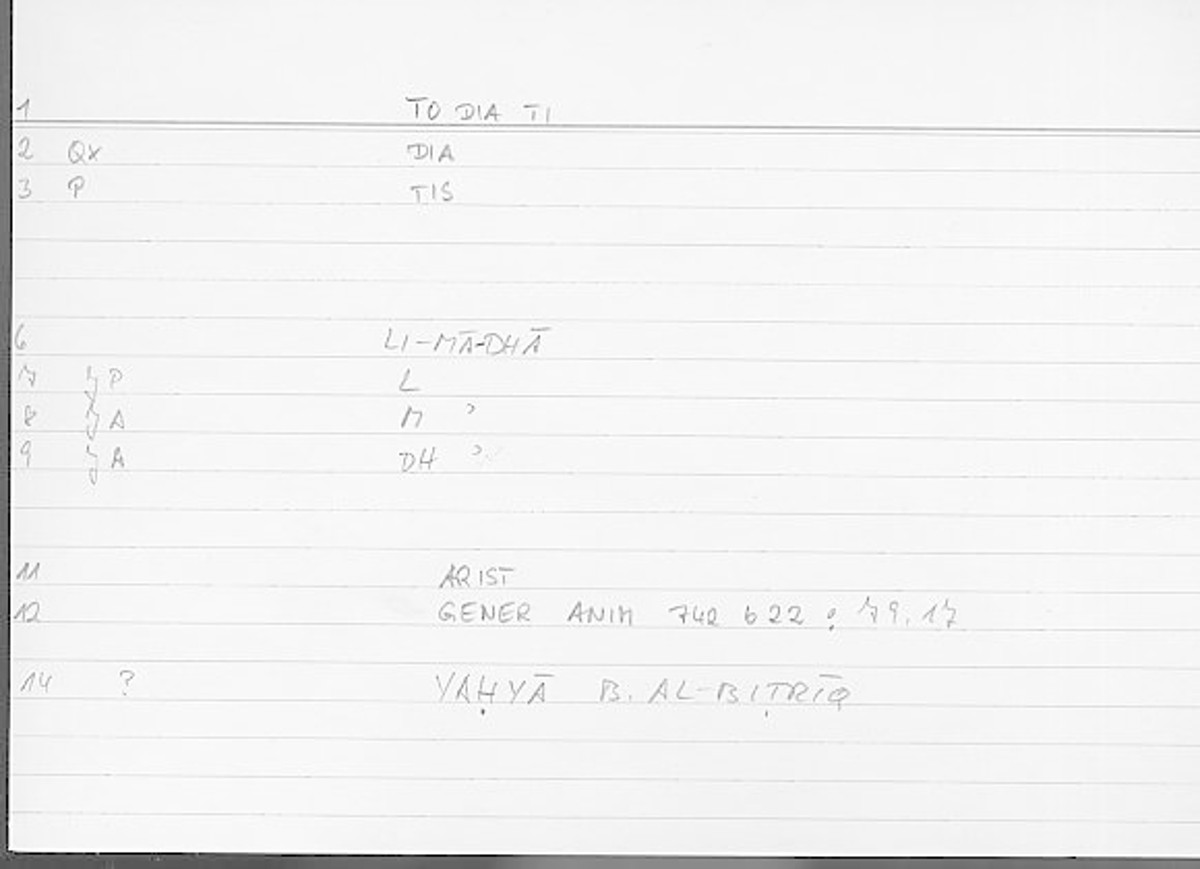 1 TO DIA TI
2 Qx DIA
3 P TIS
6 LI-MĀ-DHĀ
7 P L
8 A M ʾ
9 A DH ʾ
11 ARIST
12 GENER ANIM 742 b 22 : 79.17
14 ? YAḤYĀ B. AL-BIṬRĪQ